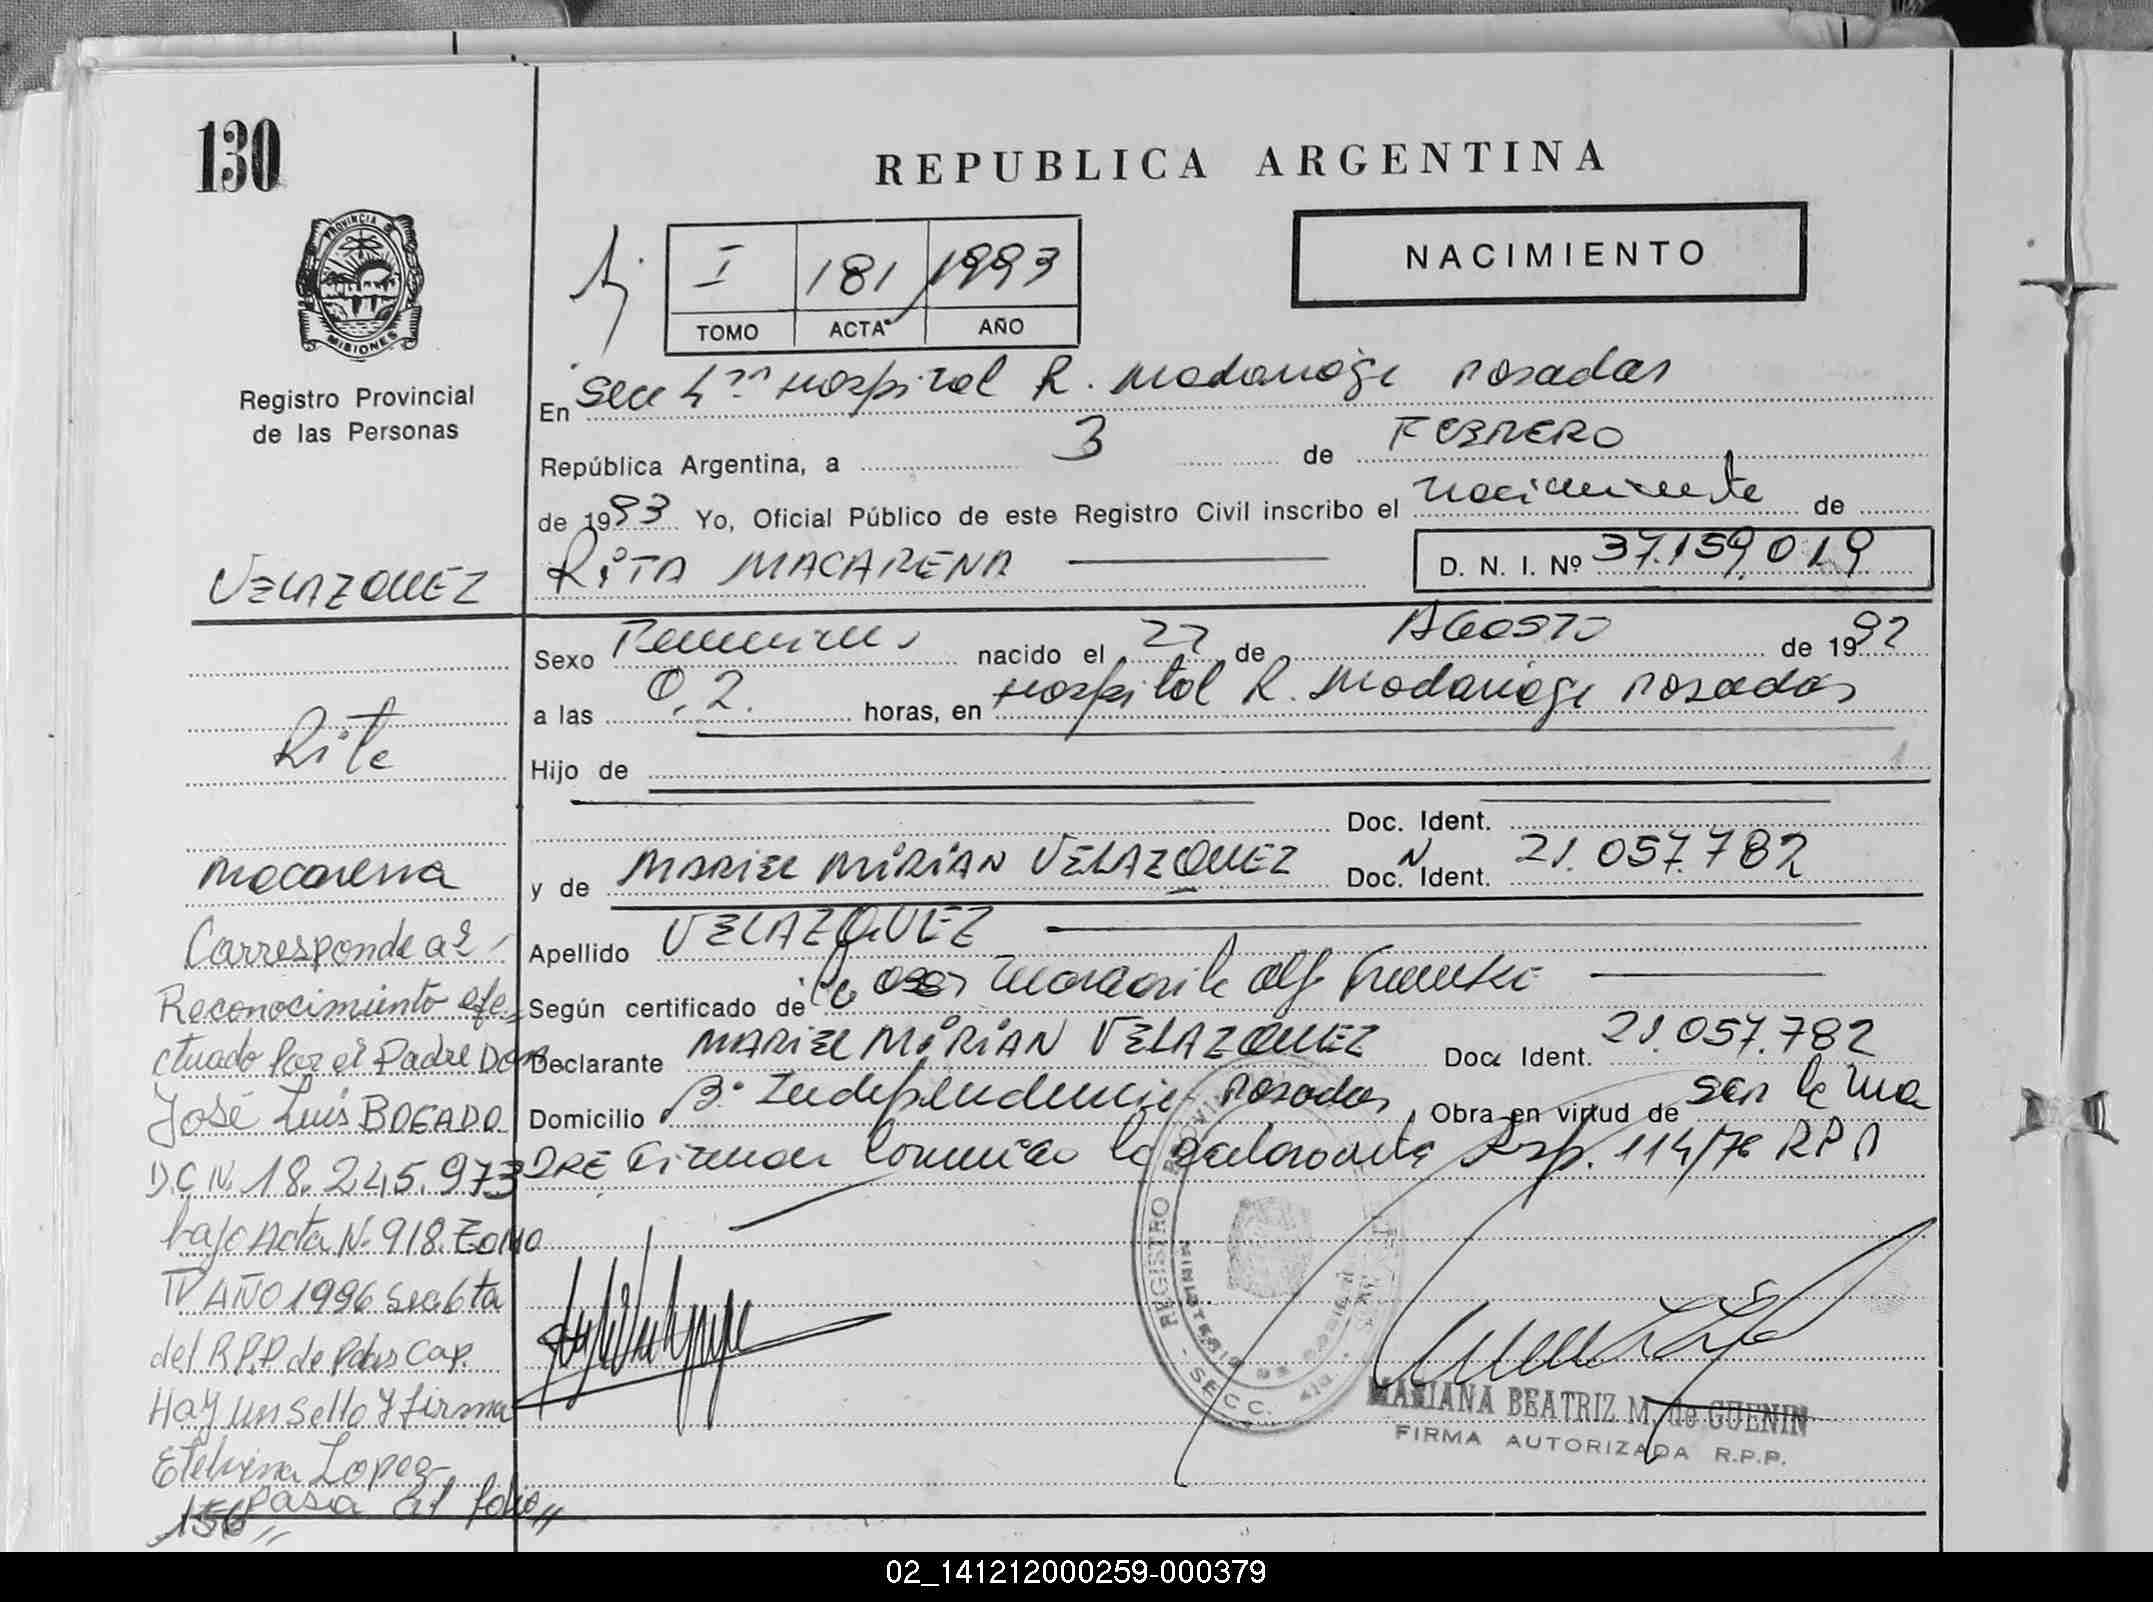 130
REPUBLICA ARGENTINA
PROVINCIA
MISIONES
I 181 1993
TOMO ACTA AÑO
NACIMIENTO
Registro Provincial
de las Personas
En Secc Hospital R. Madariaga Posadas
República Argentina, a 3 de FEBRERO
de 1993 Yo, Oficial Público de este Registro Civil inscribo el nacimiento de
VELAZQUEZ
RITA MACARENA D. N. I. Nº 37.159.019
Sexo Femenino nacido el 27 de AGOSTO de 1992
a las 0,2. horas, en Hospital R. Madariaga Posadas
Rita
Hijo de
Doc. Ident.
Macarena
y de MARIEL MIRIAN VELAZQUEZ Doc. N Ident. 21.057.782
Apellido VELAZQUEZ
Según certificado de la
Declarante MARIEL MIRIAN VELAZQUEZ Doc. Ident. 21.057.782
Domicilio Bº Independencia Posadas, Obra en virtud de ser la MA
DRE Firman conmigo la Disp. 114/76 RPP
Corresponde al
Reconocimiento efe=
ctuado Por el Padre Don
José Luis BOGADO
D.C N. 18.245.973
bajo Acta N. 918. TOMO
IV AÑO 1996 Sec. 6ta
del R.P.P de Pdas Cap.
Hay un sello y firma
Etelvina Lopez
Pasa al folio
156
REGISTRO PROVINCIAL
MINISTERIO DE
SECC.
MARIANA BEATRIZ M. de GUENIN
FIRMA AUTORIZADA R.P.P.
02_141212000259-000379